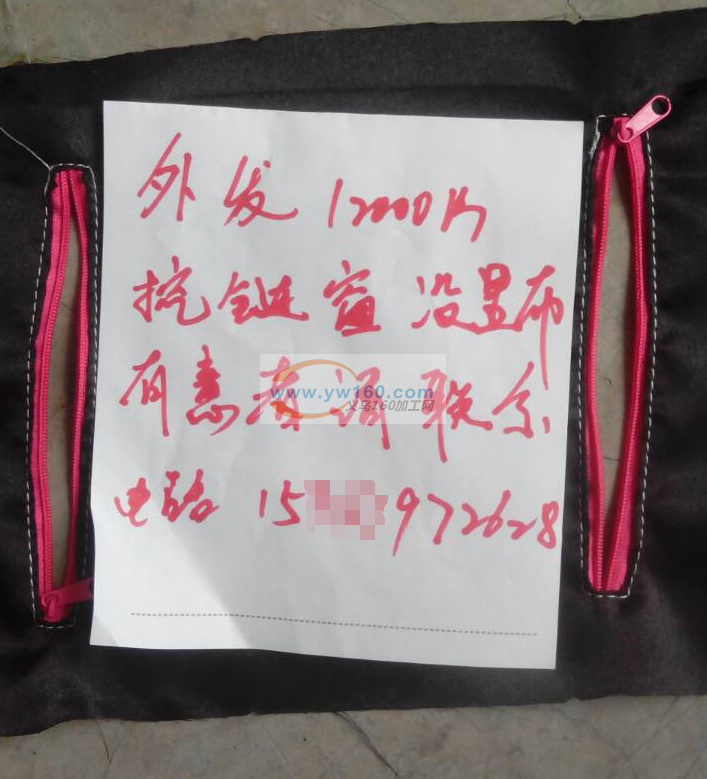 外发 12000片
挖链窗 没里布
有意者请联系
www.yw160.com
义乌160加工网
电话 15 972628